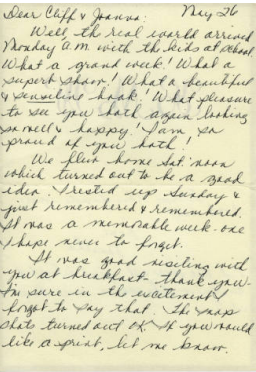 May 26
Dear Cliff & Joanna:
Well, the real world arrived
Monday a.m. with the kids at school
What a grand week! What a
superb show! What a beautiful
& sensitive book! What pleasure
to see you both again looking
so well & happy! I am so
proud of you both!
We flew home Sat. noon
which turned out to be a good
idea. I rested up Sunday &
just remembered & remembered.
It was a memorable week - one
I hope never to forget.
It was good visiting with
you at breakfast - thank you.
I'm sure in the excitement I
forgot to say that. The snap
shots turned out OK. If you would
like a print, let me know.